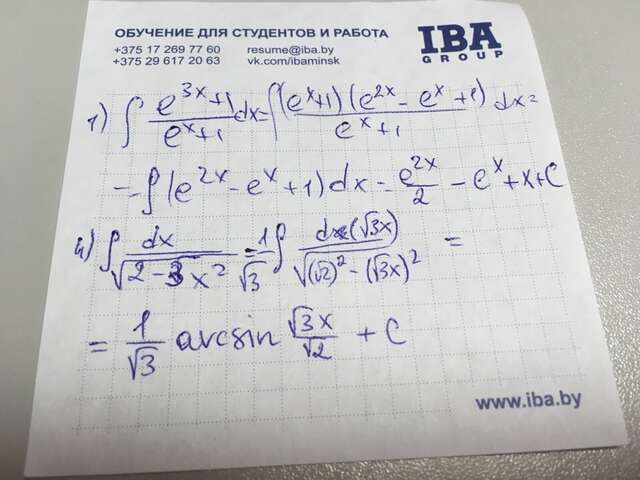 ОБУЧЕНИЕ ДЛЯ СТУДЕНТОВ И РАБОТА
+375 17 269 77 60 resume@iba.by
+375 29 617 20 63 vk.com/ibaminsk
IBA
GROUP
1) ∫ (e^{3x}+1)/(e^x+1) dx = ∫ ((e^x+1)(e^{2x} - e^x + 1))/(e^x+1) dx =
= ∫ (e^{2x} - e^x + 1) dx = e^{2x}/2 - e^x + x + C
4) ∫ dx/√(2-3x²) = 1/√3 ∫ d(√3x)/√((√2)² - (√3x)²) =
= 1/√3 arcsin √3x/√2 + C
www.iba.by